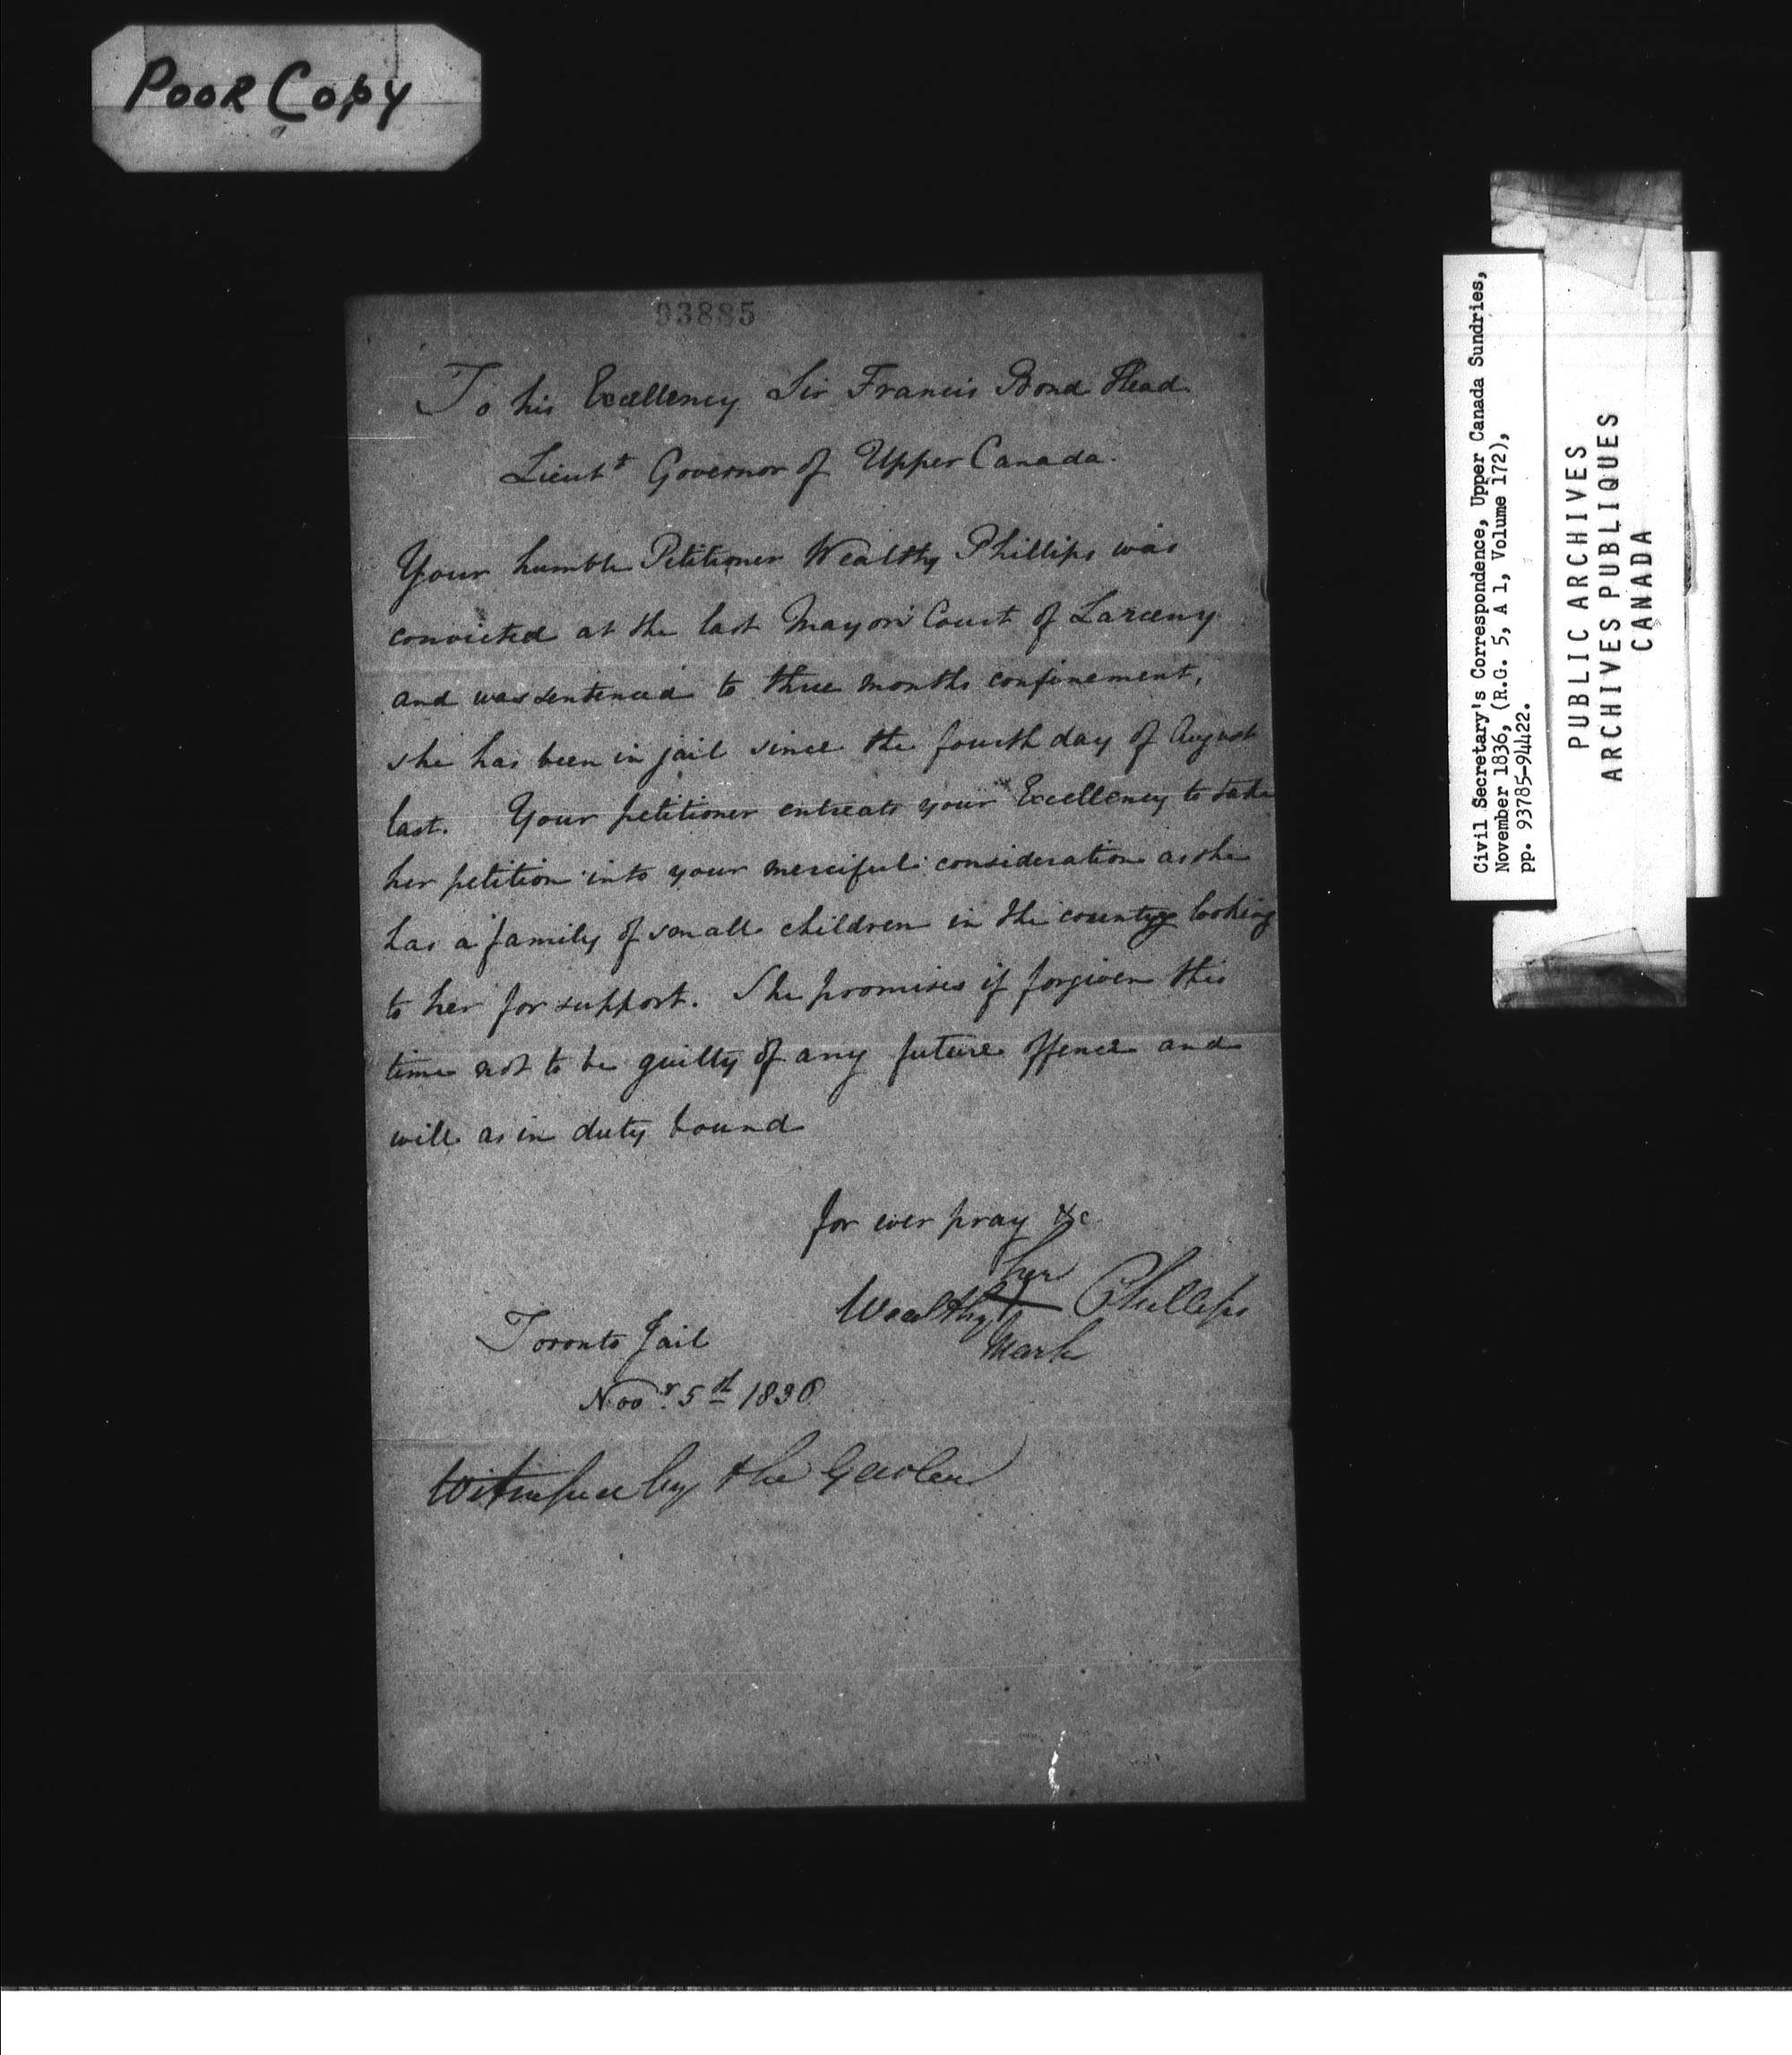 POOR COPY
93885
To his Excellency Sir Francis Bond Head
Lieut^t Governor of Upper Canada.
Your humble Petitioner Wealthy Phillips was
convicted at the last Mayors Court of Larceny
and was sentenced to three months confinement,
she has been in jail since the fourth day of August
last. Your petitioner entreats your Excellency to take
her petition into your merciful consideration as she
has a family of small children in the country looking
to her for support. She promises if forgiven this
time not to be guilty of any future offence and
will as in duty bound
for ever pray &c
her
Wealthy X Phillips
mark
Toronto Jail
Nov^r. 5^th 1836
by the Gaoler
Civil Secretary's Correspondence, Upper Canada Sundries,
November 1836, (R.G. 5, A 1, Volume 172),
pp. 93785-94422.
PUBLIC ARCHIVES
ARCHIVES PUBLIQUES
CANADA